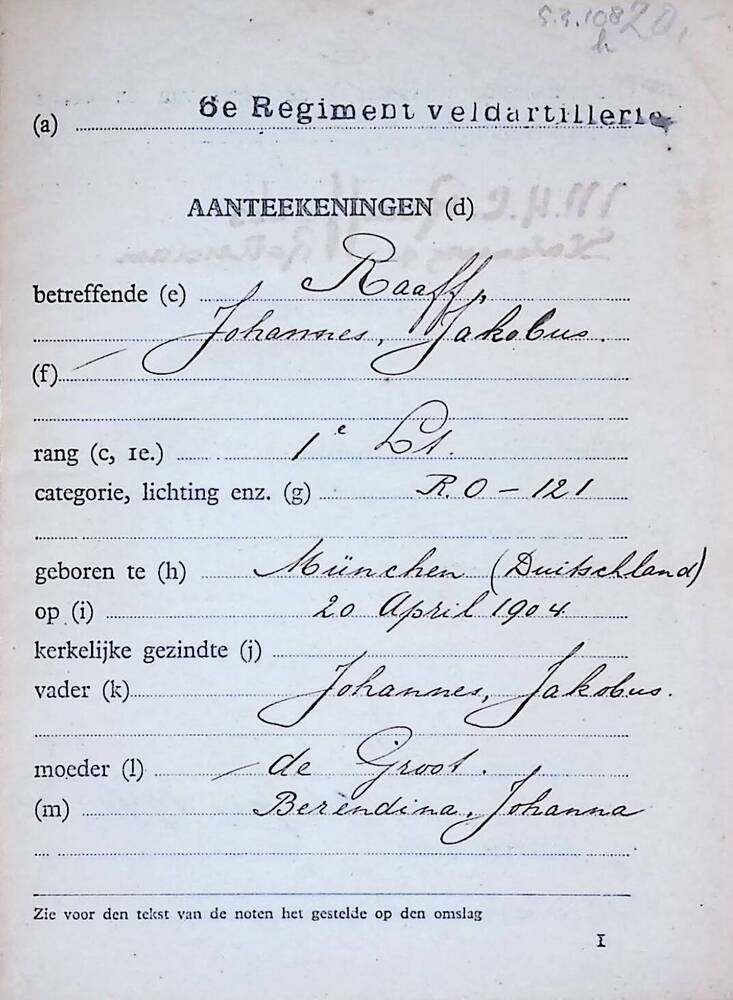 5.3.108 20,-
h
(a) 6e Regiment veldartillerie
AANTEEKENINGEN (d)
betreffende (e) Raaff,
Johannes, Jakobus.
(f)
rang (c, 1e.) 1e Lt.
categorie, lichting enz. (g) R.O – 121
geboren te (h) München (Duitschland)
op (i) 20 April 1904
kerkelijke gezindte (j)
vader (k) Johannes, Jakobus.
moeder (l) de Groot.
(m) Berendina, Johanna
Zie voor den tekst van de noten het gestelde op den omslag
1